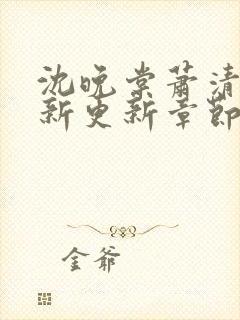 沈晚棠萧清
新更新章节
金爷